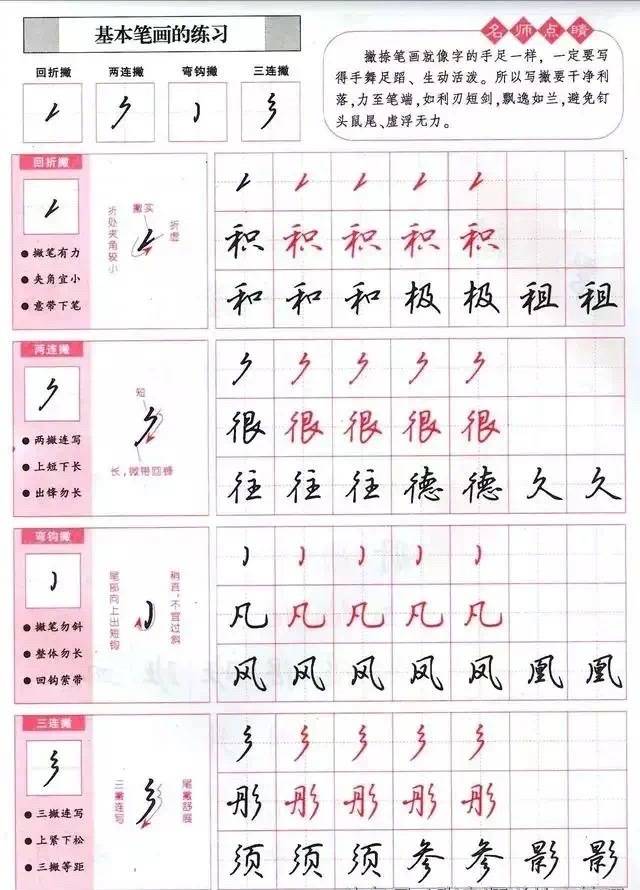 基本笔画的练习
回折撇 两连撇 弯钩撇 三连撇
名师点睛
撇捺笔画就像字的手足一样，一定要写
得手舞足蹈、生动活泼。所以写撇要干净利
落，力至笔端，如利刃短剑，飘逸如兰，避免钉
头鼠尾、虚浮无力。
回折撇
撇笔有力
夹角宜小
意带下笔
折处夹角较小
撇实
折虚
积 积 积 积 积
和 和 和 极 极 租 租
两连撇
两撇连写
上短下长
出锋勿长
短
长，微带回锋
很 很 很 很 很
往 往 往 德 德 久 久
弯钩撇
撇笔勿斜
整体勿长
回钩萦带
尾部向上出短钩
稍直，不宜过斜
凡 凡 凡 凡 凡
风 风 风 风 风 凰 凰
三连撇
三撇连写
上紧下松
三撇等距
三撇连写
尾撇舒展
彤 彤 彤 彤 彤
须 须 须 参 参 影 影